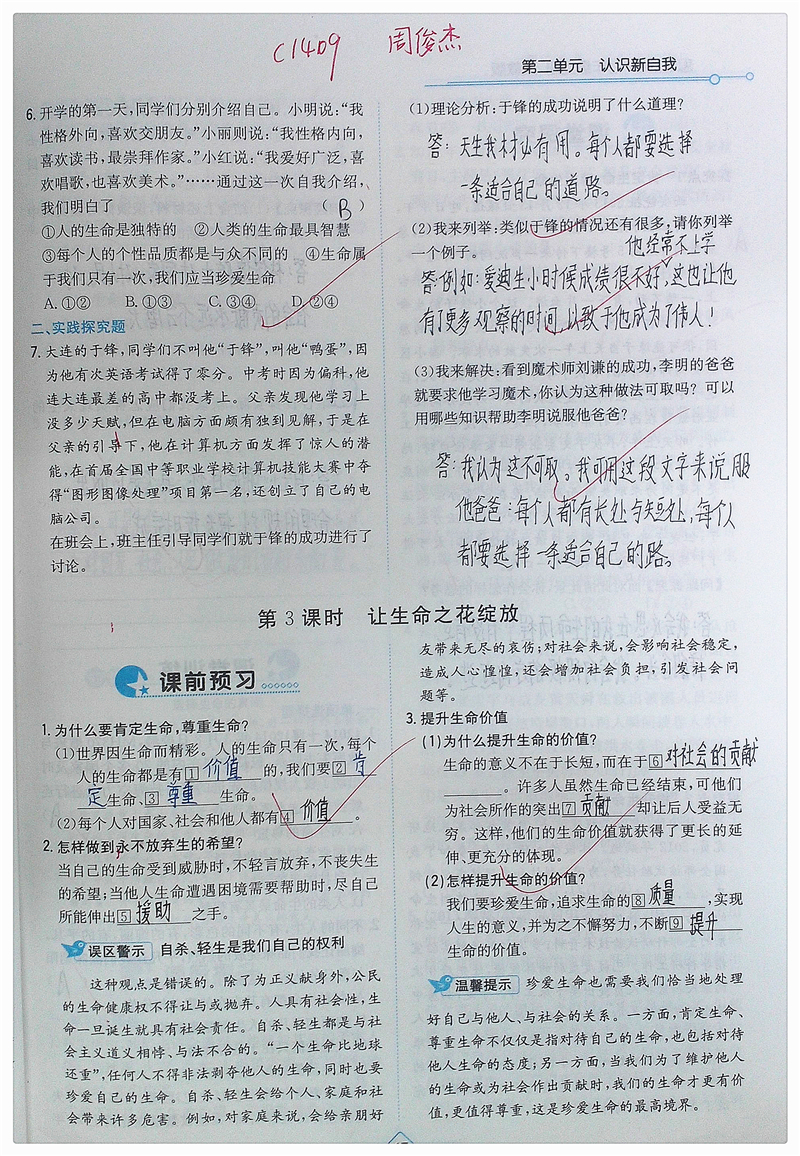 C1409 周俊杰
第二单元 认识新自我
6. 开学的第一天,同学们分别介绍自己。小明说:“我
性格外向,喜欢交朋友。”小丽则说:“我性格内向,
喜欢读书,最崇拜作家。”小红说:“我爱好广泛,喜
欢唱歌,也喜欢美术。”……通过这一次自我介绍,
我们明白了 ( B )
①人的生命是独特的 ②人类的生命最具智慧
③每个人的个性品质都是与众不同的 ④生命属
于我们只有一次,我们应当珍爱生命
A. ①② B. ①③ C. ③④ D. ②④
二、实践探究题
7. 大连的于锋,同学们不叫他“于锋”,叫他“鸭蛋”,因
为他有次英语考试得了零分。中考时因为偏科,他
连大连最差的高中都没考上。父亲发现他学习上
没多少天赋,但在电脑方面颇有独到见解,于是在
父亲的引导下,他在计算机方面发挥了惊人的潜
能,在首届全国中等职业学校计算机技能大赛中夺
得“图形图像处理”项目第一名,还创立了自己的电
脑公司。
在班会上,班主任引导同学们就于锋的成功进行了
讨论。
(1)理论分析:于锋的成功说明了什么道理?
答:天生我材必有用。每个人都要选择
一条适合自己的道路。
(2)我来列举:类似于锋的情况还有很多,请你列举
一个例子。
他经常不上学
答:例如:爱迪生小时候成绩很不好,这也让他
有了更多观察的时间,以致于他成为了伟人!
(3)我来解决:看到魔术师刘谦的成功,李明的爸爸
就要求他学习魔术,你认为这种做法可取吗?可以
用哪些知识帮助李明说服他爸爸?
答:我认为这不可取。我可用这段文字来说服
他爸爸:每个人都有长处与短处,每个人
都要选择一条适合自己的路。
第3课时 让生命之花绽放
课前预习
1. 为什么要肯定生命,尊重生命?
(1)世界因生命而精彩。人的生命只有一次,每个
人的生命都是有1 价值 的,我们要2 肯
定 生命、3 尊重 生命。
(2)每个人对国家、社会和他人都有4 价值 。
2. 怎样做到永不放弃生的希望?
当自己的生命受到威胁时,不轻言放弃,不丧失生
的希望;当他人生命遭遇困境需要帮助时,尽自己
所能伸出5 援助 之手。
误区警示 自杀、轻生是我们自己的权利
这种观点是错误的。除了为正义献身外,公民
的生命健康权不得让与或抛弃。人具有社会性,生
命一旦诞生就具有社会责任。自杀、轻生都是与社
会主义道义相悖、与法不合的。“一个生命比地球
还重”,任何人不得非法剥夺他人的生命,同时也要
珍爱自己的生命。自杀、轻生会给个人、家庭和社
会带来许多危害。例如,对家庭来说,会给亲朋好
友带来无尽的哀伤;对社会来说,会影响社会稳定,
造成人心惶惶,还会增加社会负担,引发社会问
题等。
3. 提升生命价值
(1)为什么提升生命的价值?
生命的意义不在于长短,而在于6 对社会的贡献
。许多人虽然生命已经结束,可他们
为社会所作的突出7 贡献 却让后人受益无
穷。这样,他们的生命价值就获得了更长的延
伸、更充分的体现。
(2)怎样提升生命的价值?
我们要珍爱生命,追求生命的8 质量 ,实现
人生的意义,并为之不懈努力,不断9 提升
生命的价值。
温馨提示 珍爱生命也需要我们恰当地处理
好自己与他人、与社会的关系。一方面,肯定生命、
尊重生命不仅仅是指对待自己的生命,也包括对待
他人生命的态度;另一方面,当我们为了维护他人
的生命或为社会作出贡献时,我们的生命才更有价
值,更值得尊重,这是珍爱生命的最高境界。